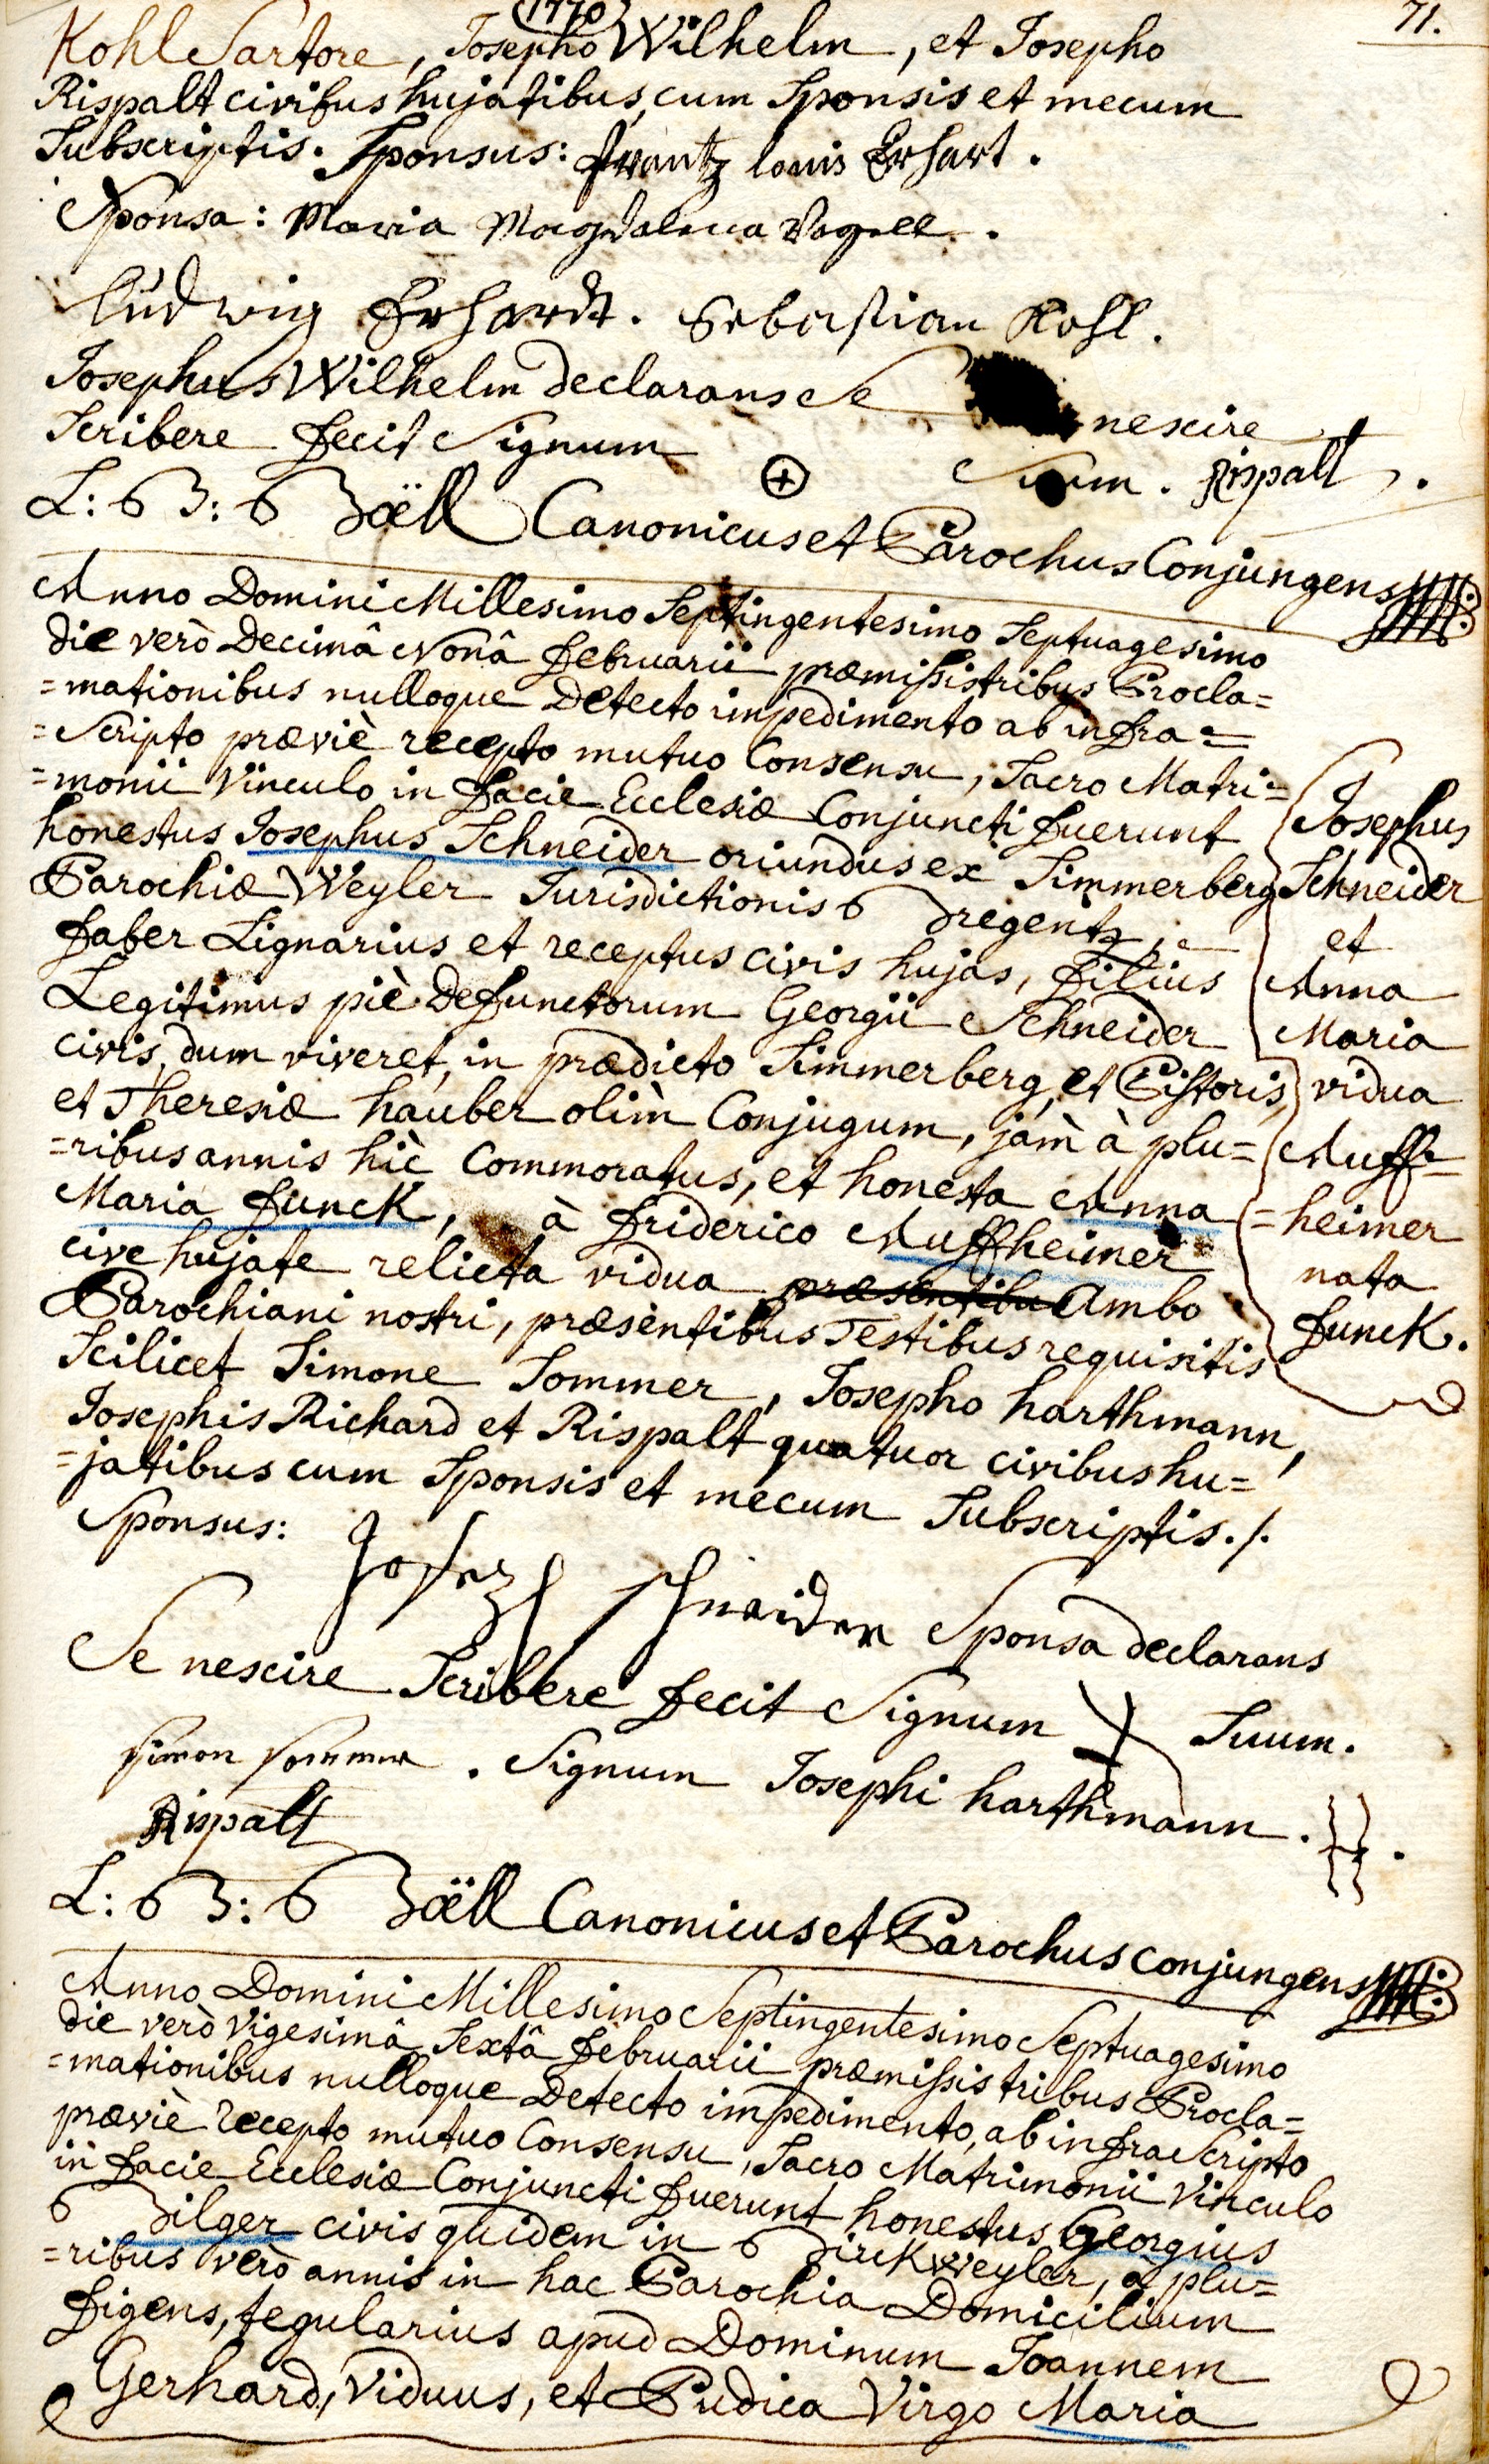 1770
71.
Kohl Sartore, Josepho Wilhelm, et Josepho
Rispalt civibus hujatibus, cum Sponsis et mecum
Subscriptis. Sponsus: Frantz louis Erhart.
Sponsa: Maria Magdalena Vogell.
Ludwig Erhardt. Sebastian Kohl.
Josephus Wilhelm declarans Se nescire
Scribere fecit Signum ⊕ Suum. Rispalt.
L: B: Bæll Canonicus et Parochus Conjungens
Anno Domini Millesimo Septingentesimo Septuagesimo
die verò Decimâ Nonâ februarii præmissis tribus Procla=
=mationibus nulloque Detecto impedimento ab infra=
=Scripto præviè recepto mutuo Consensu, Sacro Matri=
=monii Vinculo in facie Ecclesiæ Conjuncti fuerunt
honestus Josephus Schneider oriundus ex Simmerberg
Parochiæ Weyler Jurisdictionis Bregentz,
faber Lignarius et receptus civis hujas, filius
Legitimus piè Defunctorum Georgii Schneider
civis, dum viveret, in prædicto Simmerberg, et Pistoris,
et Theresiæ hauber olìm Conjugum, jàm à plu=
=ribus annis hìc Commoratus, et honesta Anna
Maria funck, à friderico Auffheimer
cive hujate relicta vidua præsentibu Ambo
Parochiani nostri, præsentibus Testibus requisitis
Scilicet Simone Sommer, Josepho harthmann,
Josephis Richard et Rispalt quatuor civibus hu=
=jatibus cum Sponsis et mecum Subscriptis./.
Josephus
Schneider
et
Anna
Maria
vidua
Auff=
=heimer
nata
funck.
Sponsus: Joseph schneider Sponsa declarans
Se nescire Scribere fecit Signum Suum.
Simon sommer. Signum Josephi harthmann.
Rispalt
L: B: Bæll Canonicus et Parochus conjungens
Anno Domini Millesimo Septingentesimo Septuagesimo
die verò Vigesimâ Sextâ februarii præmissis tribus Procla=
=mationibus nulloque Detecto impedimento, ab infra Scripto
præviè recepto mutuo Consensu, Sacro Matrimonii Vinculo
in facie Ecclesiæ Conjuncti fuerunt honestus Georgius
Bilger civis quidem in Birckweyler, à plu=
=ribus verò annis in hac Parochia Domicilium
figens, tegularius apud Dominum Joannem
Gerhard, Viduus, et Pudica Virgo Maria